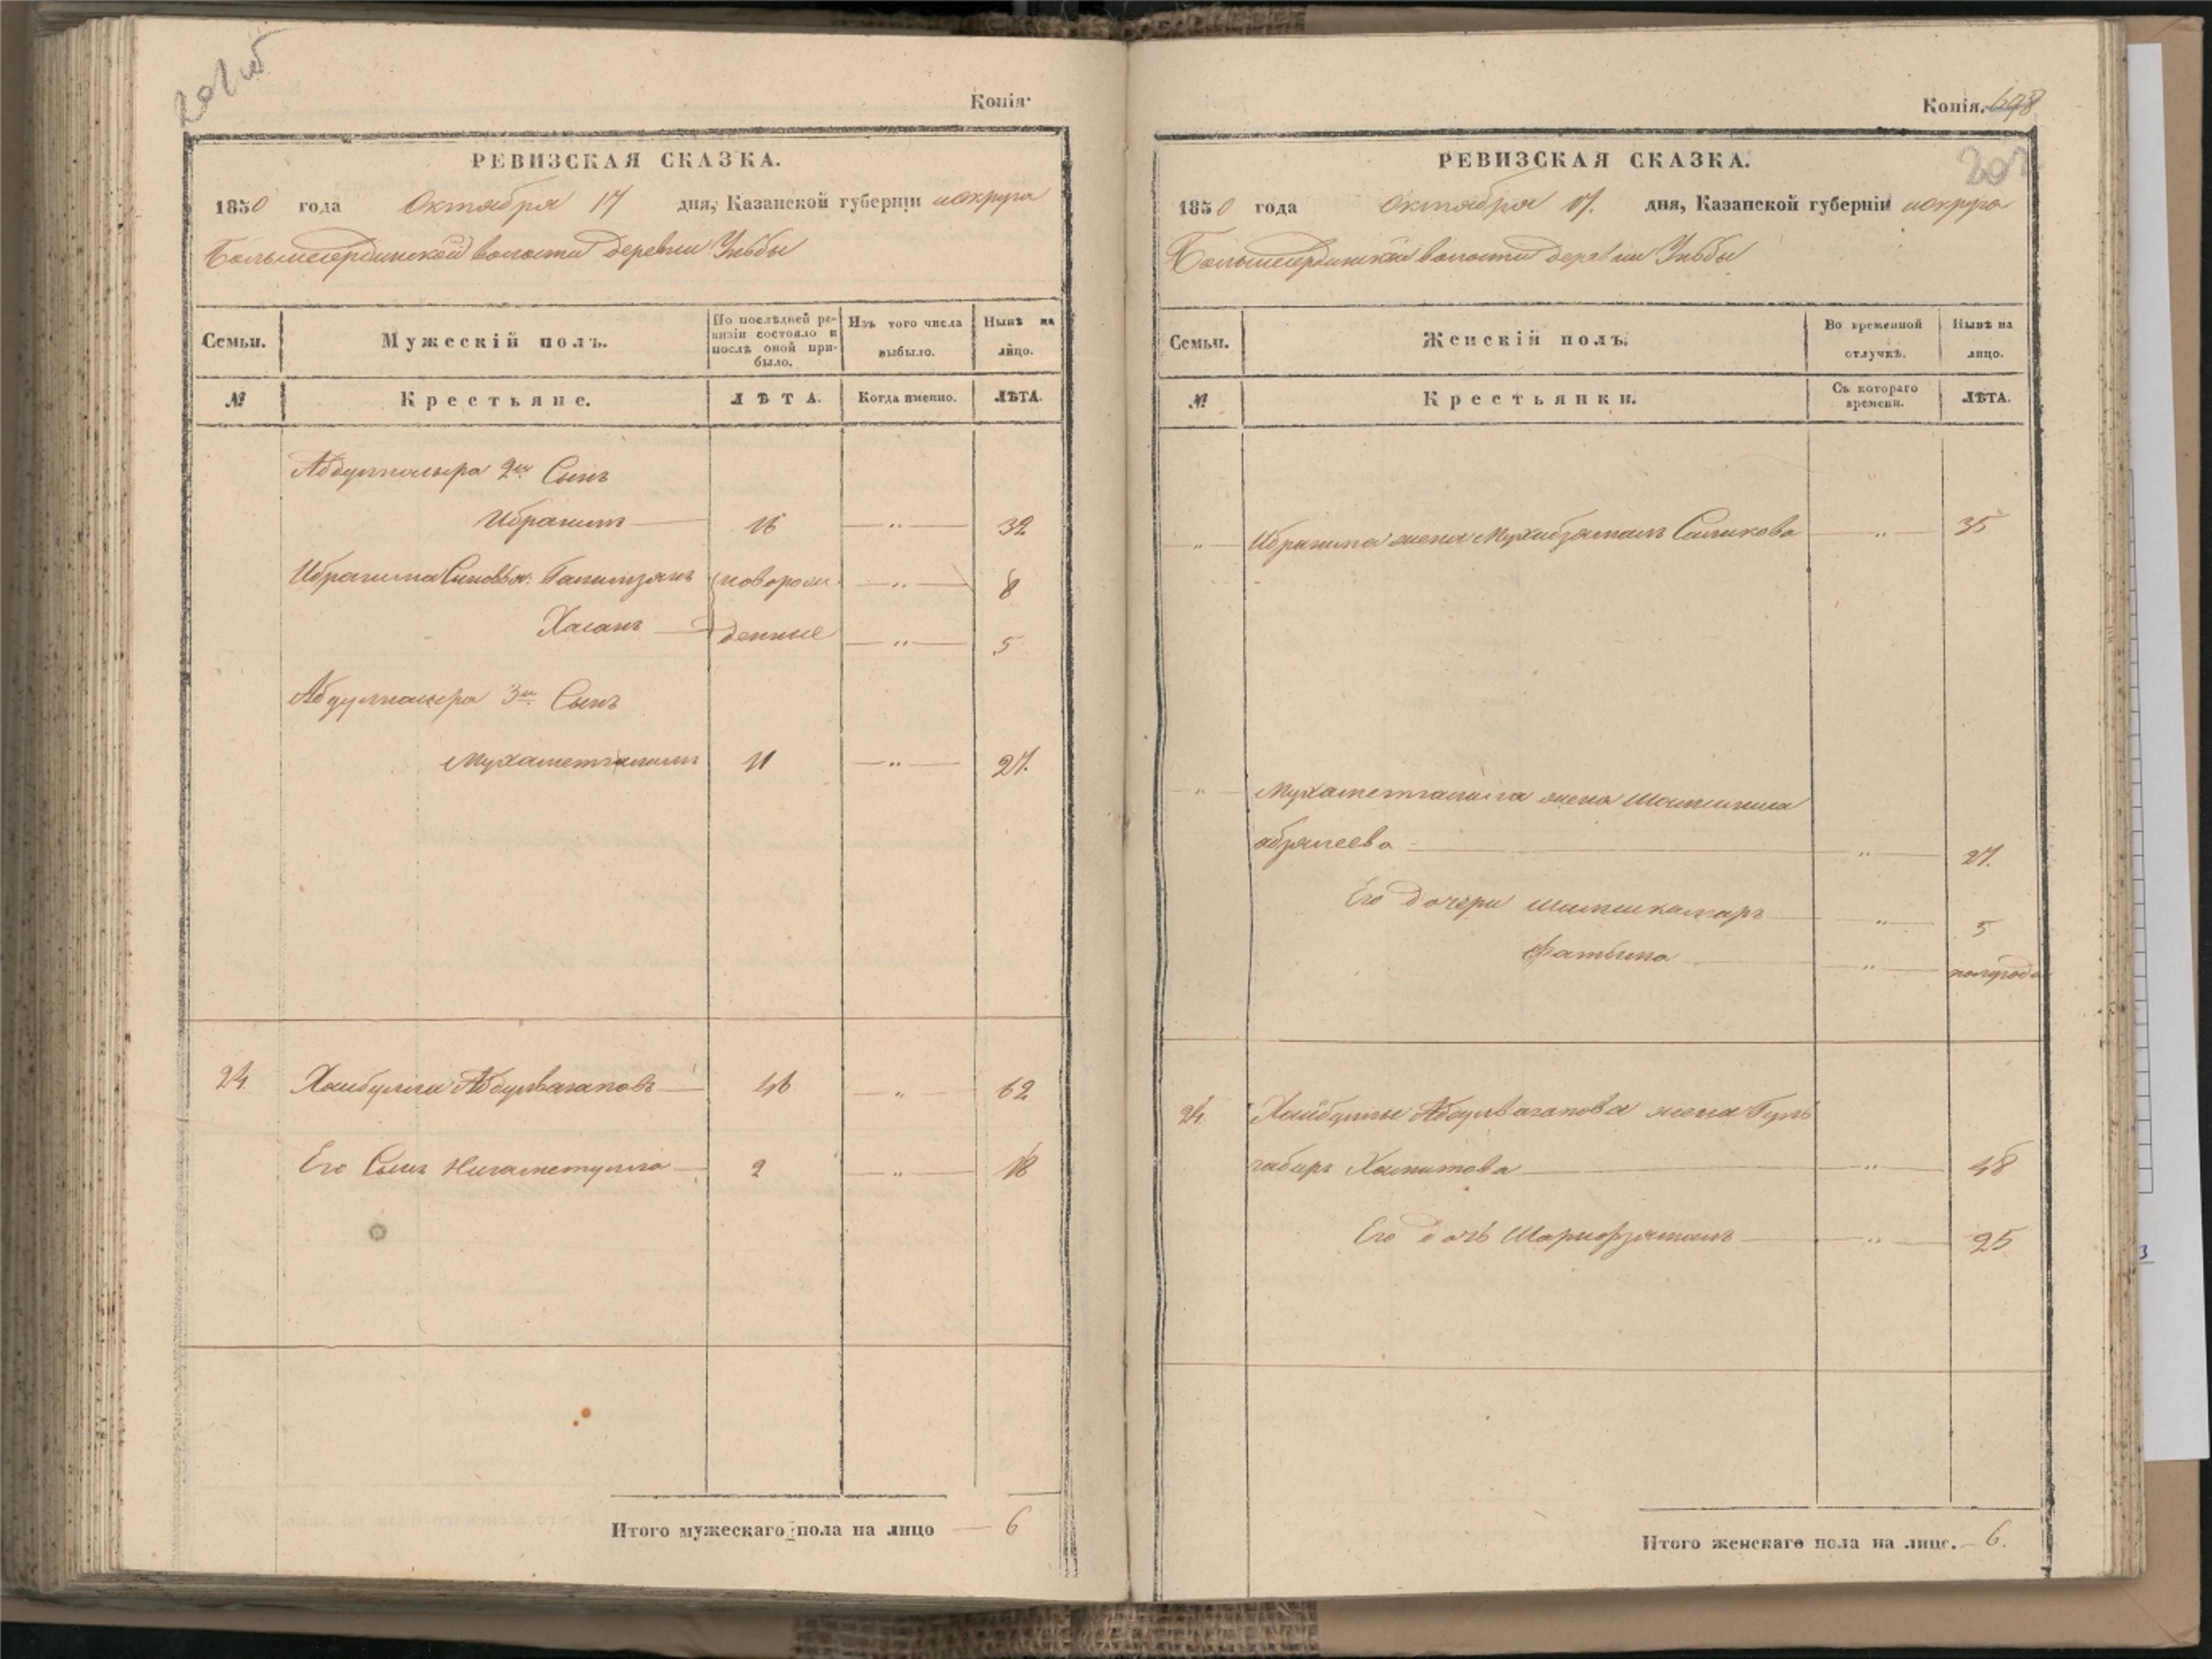 201 об
Копія.
РЕВИЗСКАЯ СКАЗКА.
1850 года Октября 17 дня, Казанской губерніи и округа
Большеердинской волости деревни Ульбы
Семьи.
Мужескій полъ.
По послѣдней ре-
визіи состояло и
послѣ оной при-
было.
Изъ того числа
выбыло.
Нынѣ на
лицо.
№
Крестьяне.
ЛѢТА.
Когда именно.
ЛѢТА.
Абдулнасыра 2й Сынъ
Ибрагимъ 16 " 32
Ибрагима Сыновья: Галимзянъ новорож- " 8
Хасанъ денные " 5
Абдулнасыра 3й Сынъ
Мухаметгалимъ 11 " 27.
24. Хайбулла Абдулвагаповъ 46 " 62
Его Сынъ Нигаметулла 2 " 18
Итого мужескаго пола на лицо 6
Копія. 698
202
РЕВИЗСКАЯ СКАЗКА.
1850 года Октября 17. дня, Казанской губерніи и округа
Большеердинской волости деревни Ульбы
Семьи.
Женскій полъ.
Во временной
отлучкѣ.
Нынѣ на
лицо.
№
Крестьянки.
Съ котораго
времени.
ЛѢТА.
" Ибрагима жена Мухибзямалъ Саликова " 35
" Мухаметгалима жена
" 27.
Его дочери Шамсикамаръ " 5
Фатыма " полгода
24. Хайбуллы Абдулвагапова жена Гуль
габиръ Хамитова " 48
Его дочь Шарифзямалъ " 25
Итого женскаго пола на лицо. 6.